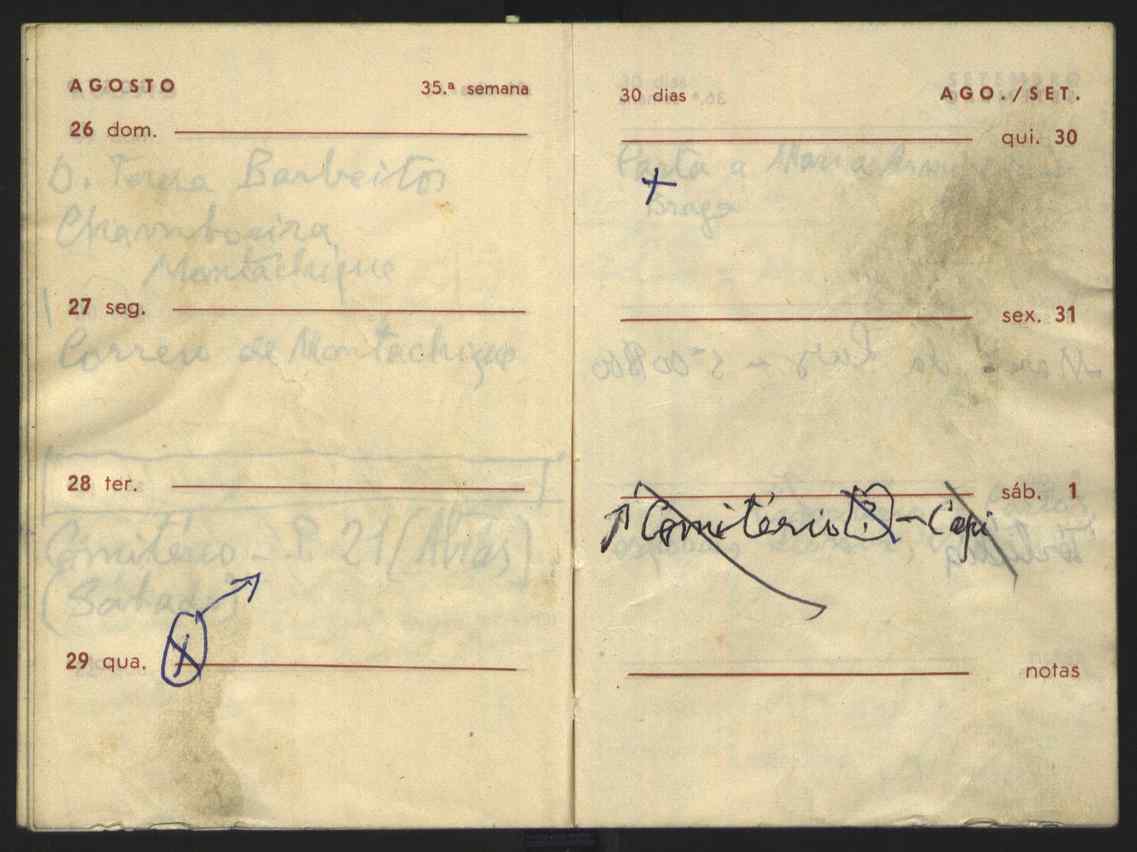 AGOSTO 35.ª semana
26 dom.
D. Teresa Barbeitos
Chamboeira
Montachique
27 seg.
Correio de Montachique
28 ter.
Comitério - P. 21
(Sábado)
29 qua.
30 dias AGO./SET.
qui. 30
Carta a Maria
+
Braga
sex. 31
sáb. 1
Comitério ? -
notas